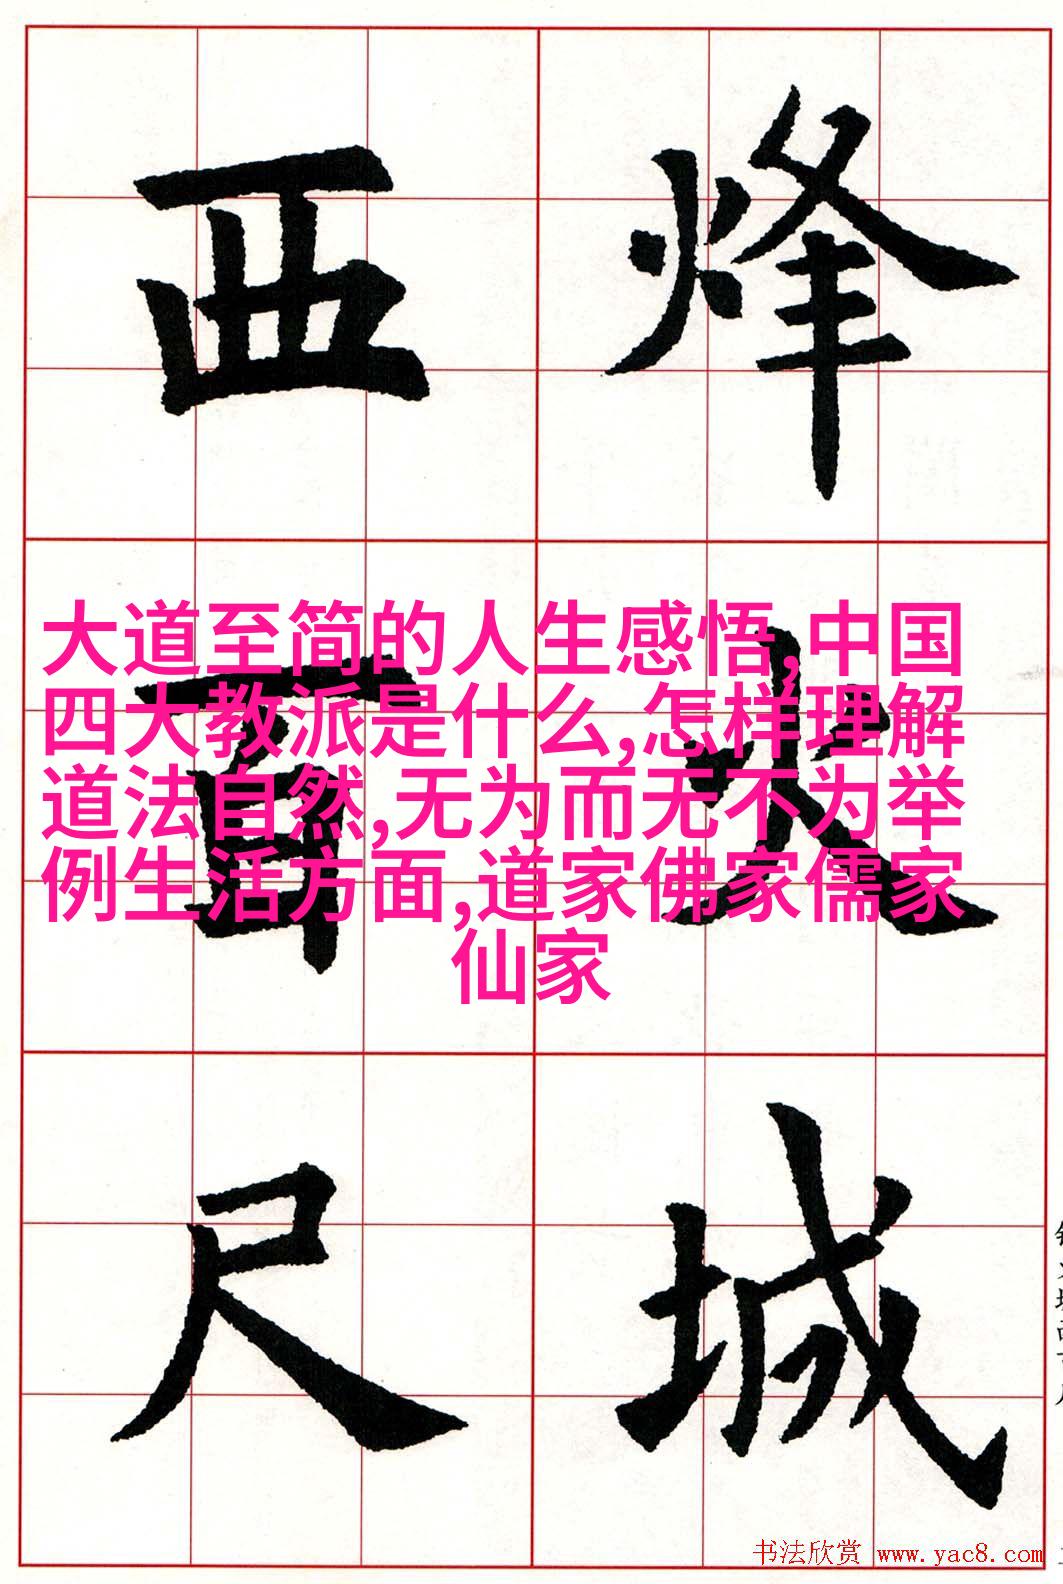 烽火城
西百尺
大道至简的人生感悟,中国
四大教派是什么,怎样理解
道法自然,无为而无不为举
例生活方面,道家佛家儒家
仙家
书法欣赏 www.yac8.com